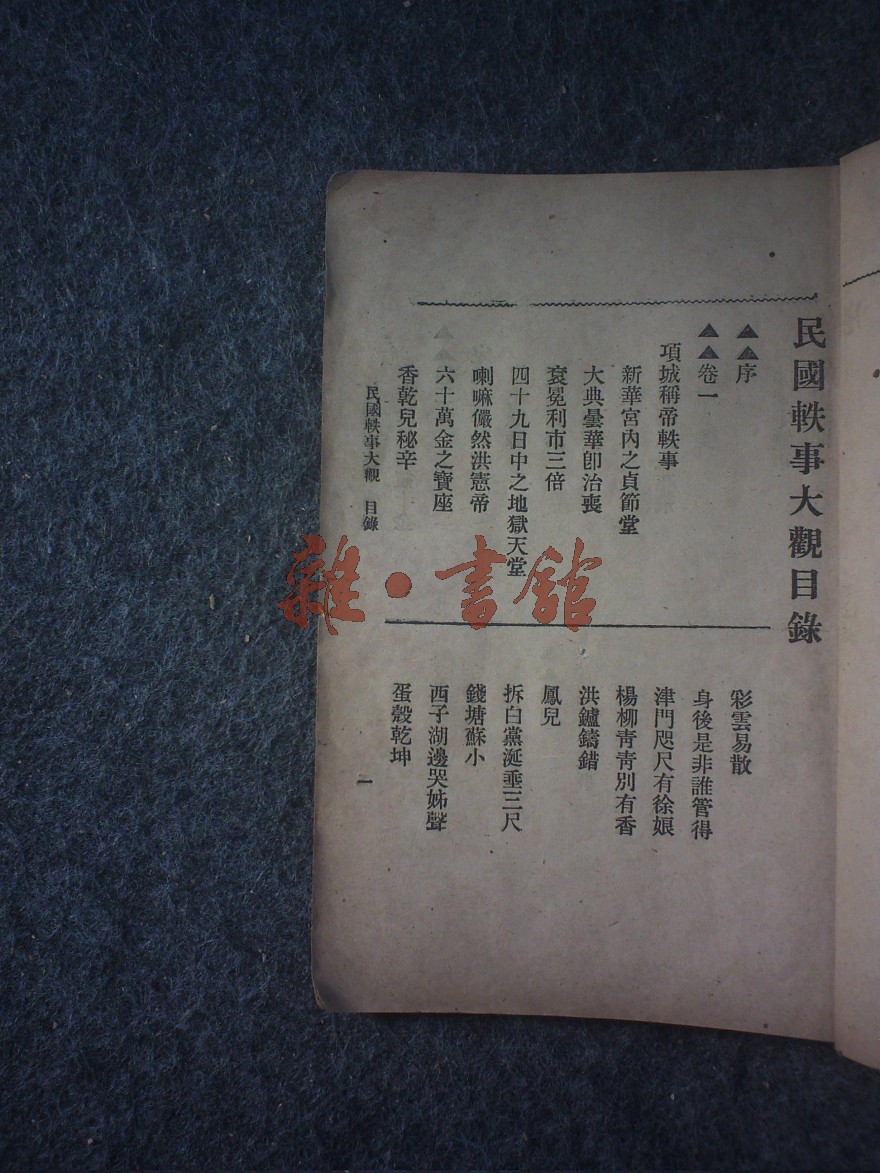 民國軼事大觀目錄
▲▲序
▲▲卷一
項城稱帝軼事
新華宮內之貞節堂
大典曇華卽治喪
袞冕利市三倍
四十九日中之地獄天堂
喇嘛儼然洪憲帝
六十萬金之寶座
香乾兒秘辛
彩雲易散
身後是非誰管得
津門咫尺有徐娘
楊柳靑靑別有香
洪鑪鑄錯
鳳兒
拆白黨涎垂三尺
錢塘蘇小
西子湖邊哭姊聲
蛋殼乾坤
民國軼事大觀 目錄
一
雜·書館